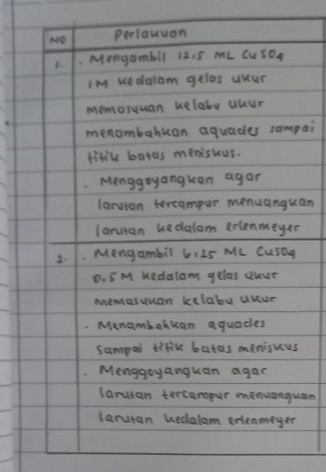 NO Perlakuan
1. . Mengambil 12.5 mL CuSO4
1M kedalam gelas ukur
memasukan kelabu ukur
menambahkan aquades sampai
titik batas meniskus.
. Menggoyangkan agar
larutan tercampur menuangkan
larutan kedalam erlenmeyer
2. . Mengambil 6.25 ML CuSO4
0.5 M kedalam gelas ukur
memasukan kelabu ukur
- Menambahkan aquades
sampai titik batas meniskus
. Menggoyangkan agar
larutan tercampur menuangkan
larutan kedalam erlenmeyer